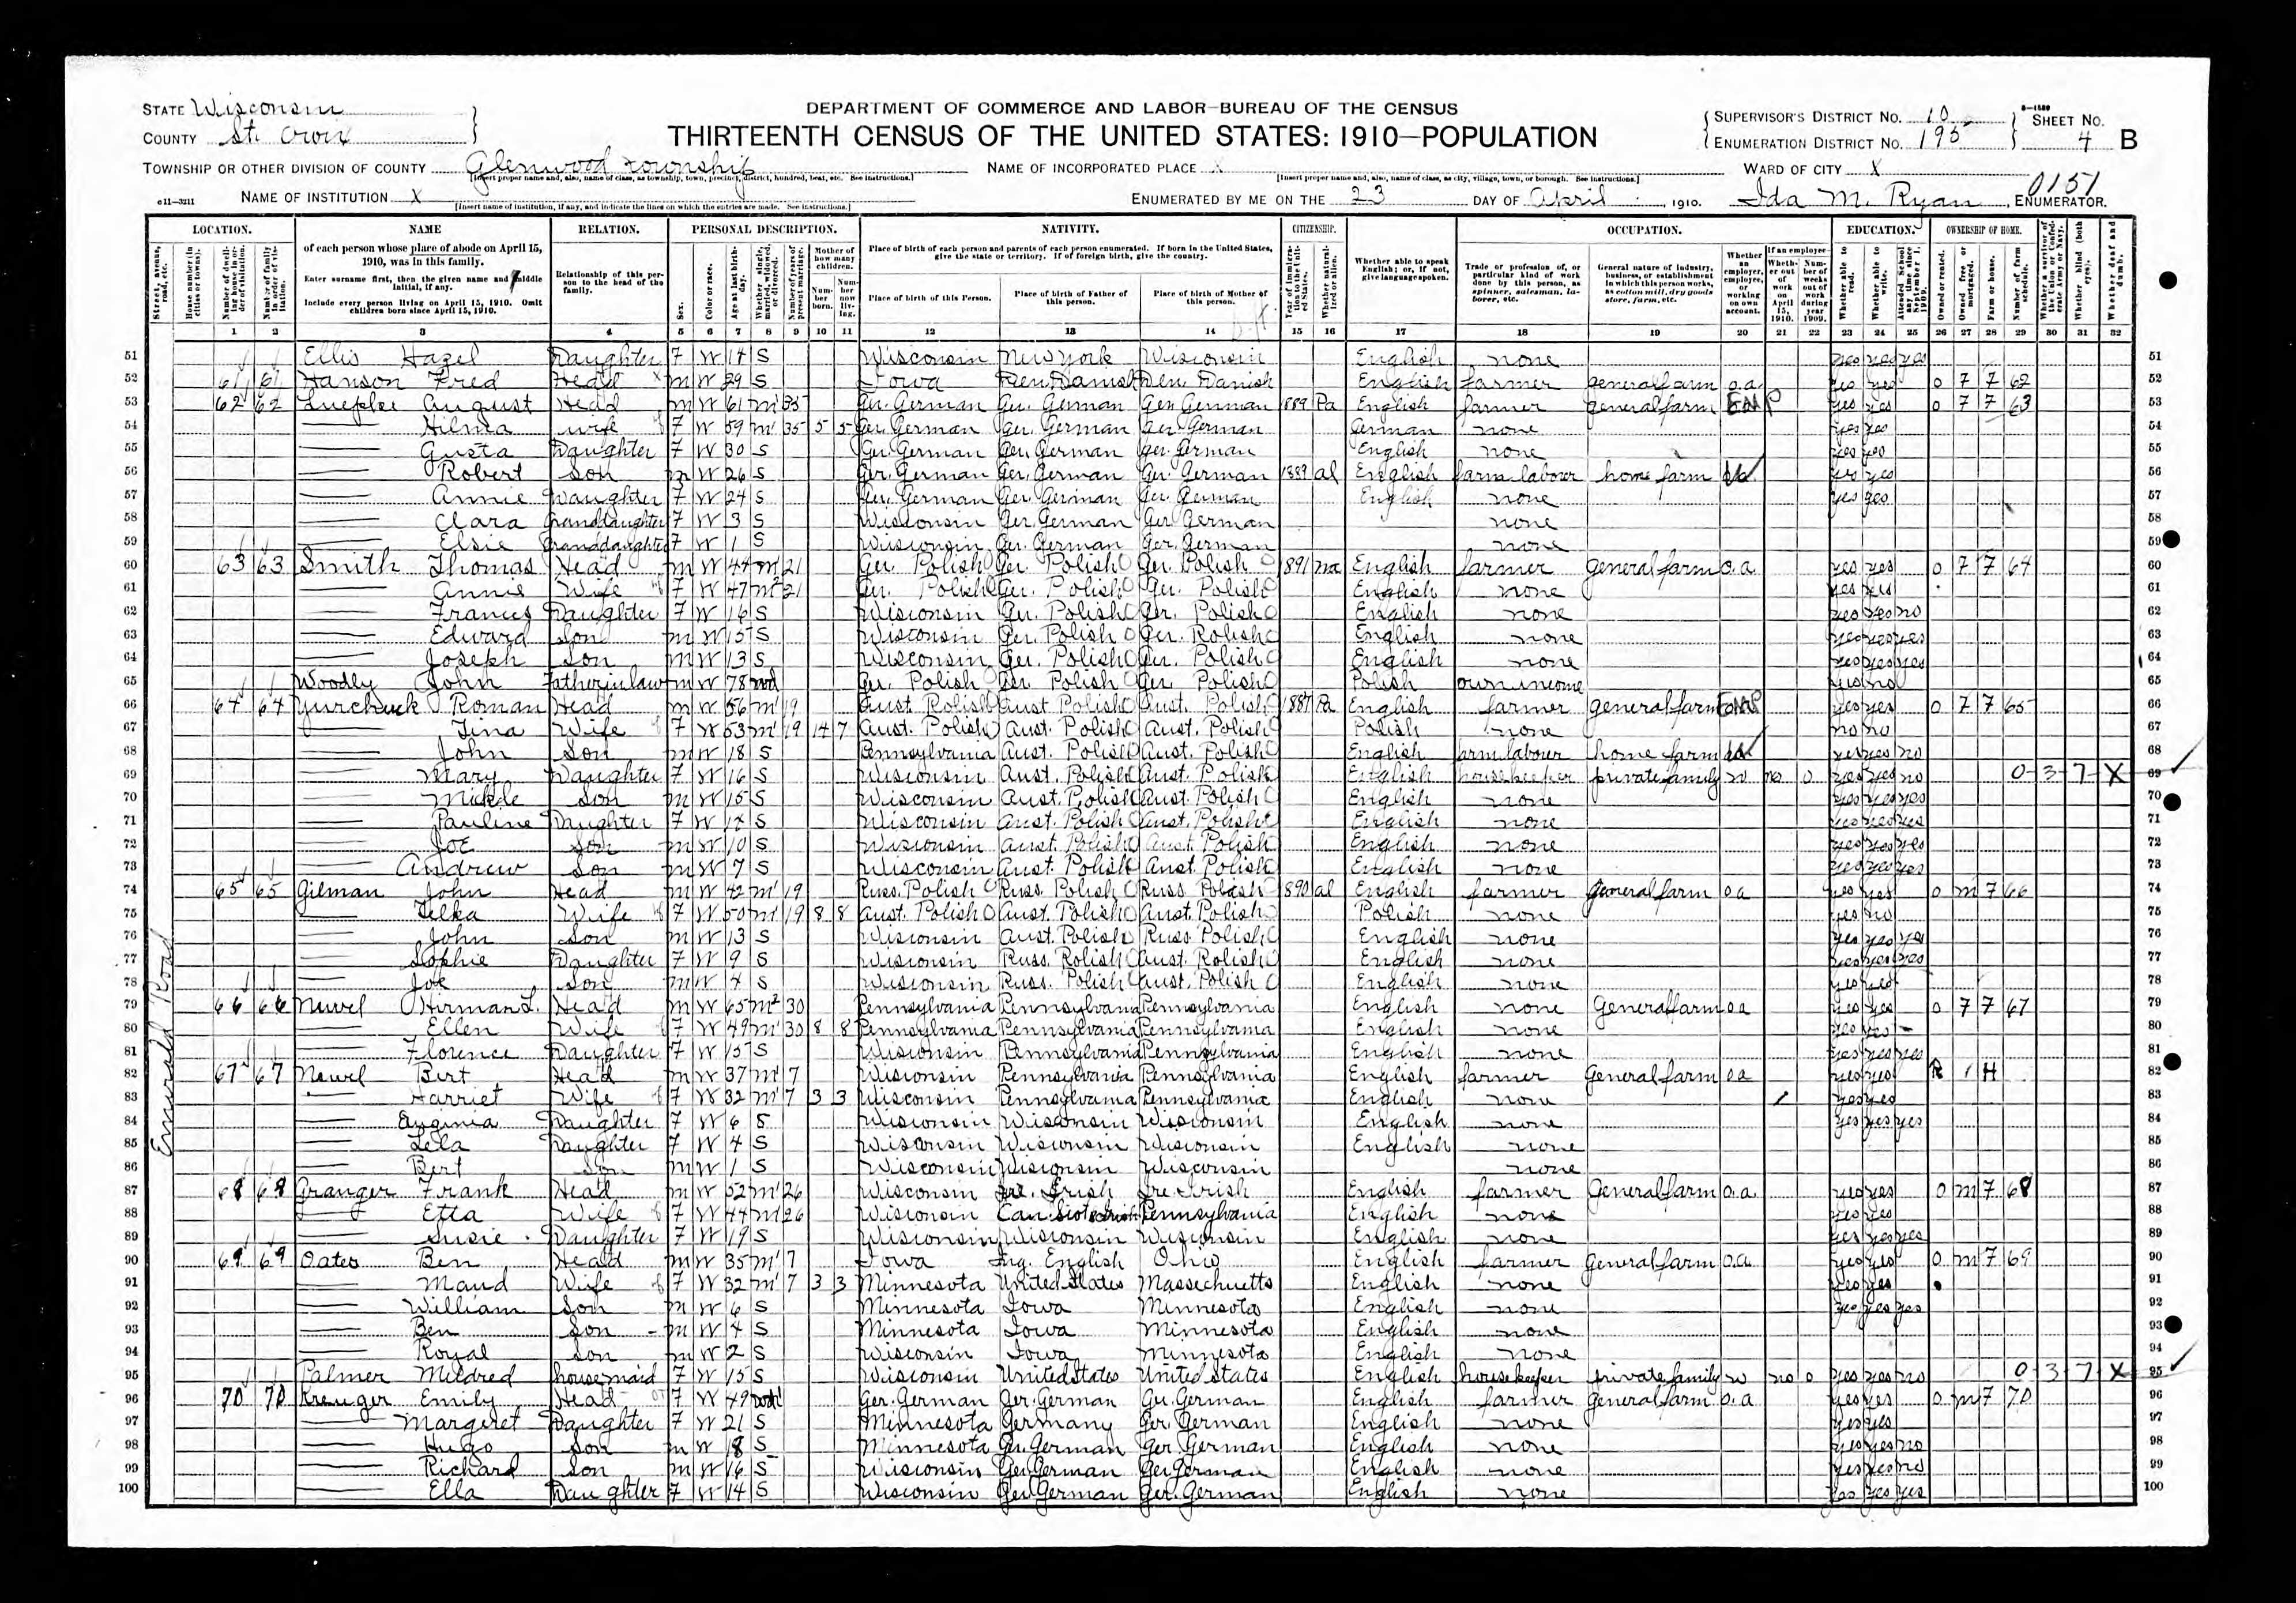 STATE Wisconsin
COUNTY St. Croix
DEPARTMENT OF COMMERCE AND LABOR—BUREAU OF THE CENSUS
THIRTEENTH CENSUS OF THE UNITED STATES: 1910—POPULATION
SUPERVISOR'S DISTRICT NO. 10
ENUMERATION DISTRICT NO. 195
SHEET NO. 4 B
TOWNSHIP OR OTHER DIVISION OF COUNTY Glenwood Township
NAME OF INCORPORATED PLACE X
WARD OF CITY X
0151
NAME OF INSTITUTION X
ENUMERATED BY ME ON THE 23 DAY OF April, 1910. Ida M. Ryan, ENUMERATOR.
LOCATION. NAME RELATION. PERSONAL DESCRIPTION. NATIVITY. CITIZENSHIP. OCCUPATION. EDUCATION. OWNERSHIP OF HOME.
of each person whose place of abode on April 15, 1910, was in this family.
Enter surname first, then the given name and middle initial, if any.
Include every person living on April 15, 1910. Omit children born since April 15, 1910.
Relationship of this person to the head of the family.
Place of birth of each person and parents of each person enumerated. If born in the United States, give the state or territory. If of foreign birth, give the country.
Place of birth of this Person. Place of birth of Father of this person. Place of birth of Mother of this person.
Whether able to speak English; or, if not, give language spoken.
1 2 3 4 5 6 7 8 9 10 11 12 13 14 15 16 17 18 19 20 21 22 23 24 25 26 27 28 29 30 31 32
51 Ellis Hazel Daughter F W 14 S Wisconsin New York Wisconsin English none yes yes yes 51
52 61 61 Hanson Fred Head m W 29 S Iowa Den. Danish Den. Danish English farmer general farm o.a. yes yes O F F 62 52
53 62 62 August Head m W 61 m1 35 Ger. German Ger. German Ger. German 1889 Pa English farmer general farm Emp yes yes O F F 63 53
54 Wife F W 59 m1 35 5 5 Ger. German Ger. German Ger. German German none yes yes 54
55 Gusta Daughter F W 30 S Ger. German Ger. German Ger. German English none yes yes 55
56 Robert Son m W 26 S Ger. German Ger. German Ger. German 1889 al English farm labour home farm yes yes 56
57 Annie Daughter F W 24 S Ger. German Ger. German Ger. German English none yes yes 57
58 Clara Granddaughter F W 3 S Wisconsin Ger. German Ger. German none 58
59 Elsie Granddaughter F W 1 S Wisconsin Ger. German Ger. German none 59
60 63 63 Smith Thomas Head m W 44 m 21 Ger. Polish Ger. Polish Ger. Polish 1891 na English farmer general farm o.a. yes yes O F F 64 60
61 Annie Wife F W 47 m2 21 Ger. Polish Ger. Polish Ger. Polish English none yes yes 61
62 Frances Daughter F W 16 S Wisconsin Ger. Polish Ger. Polish English none yes yes no 62
63 Edward Son m W 15 S Wisconsin Ger. Polish Ger. Polish English none yes yes yes 63
64 Joseph Son m W 13 S Wisconsin Ger. Polish Ger. Polish English none yes yes yes 64
65 Woodly John Father in law m W 78 wd Ger. Polish Ger. Polish Ger. Polish Polish own income yes no 65
66 64 64 Yurchuck Roman Head m W 56 m1 19 Aust. Polish Aust. Polish Aust. Polish 1887 Pa English farmer general farm Emp yes yes O F F 65 66
67 Tina Wife F W 53 m1 19 14 7 Aust. Polish Aust. Polish Aust. Polish Polish none no no 67
68 John Son m W 18 S Pennsylvania Aust. Polish Aust. Polish English farm labour home farm yes yes no 68
69 Mary Daughter F W 16 S Wisconsin Aust. Polish Aust. Polish English housekeeper private family w no 0 yes yes no 0 3 7 X 69
70 Son m W 15 S Wisconsin Aust. Polish Aust. Polish English none yes yes yes 70
71 Pauline Daughter F W S Wisconsin Aust. Polish Aust. Polish English none yes yes yes 71
72 Joe Son m W 10 S Wisconsin Aust. Polish Aust. Polish English none yes yes yes 72
73 Andrew Son m W 7 S Wisconsin Aust. Polish Aust. Polish English none yes yes yes 73
74 65 65 Gilman John Head m W 42 m1 19 Russ. Polish Russ. Polish Russ. Polish 1890 al English farmer general farm o.a. yes yes O m F 66 74
75 Wife F W 50 m1 19 8 8 Aust. Polish Aust. Polish Aust. Polish Polish none yes no 75
76 John Son m W 13 S Wisconsin Aust. Polish Russ. Polish English none yes yes yes 76
77 Sophie Daughter F W 9 S Wisconsin Russ. Polish Aust. Polish English none yes yes yes 77
78 Joe Son m W S Wisconsin Russ. Polish Aust. Polish English none yes yes 78
79 66 66 Newel Hirman L. Head m W 65 m2 30 Pennsylvania Pennsylvania Pennsylvania English none General farm o.a. yes yes O F F 67 79
80 Ellen Wife F W 49 m1 30 8 8 Pennsylvania Pennsylvania Pennsylvania English none yes yes 80
81 Florence Daughter F W 15 S Wisconsin Pennsylvania Pennsylvania English none yes yes yes 81
82 67 67 Newel Bert Head m W 37 m1 7 Wisconsin Pennsylvania Pennsylvania English farmer General farm o.a. yes yes R H 82
83 Harriet Wife F W 32 m1 7 3 3 Wisconsin Pennsylvania Pennsylvania English none yes yes 83
84 Euginia Daughter F W 6 S Wisconsin Wisconsin Wisconsin English none yes yes yes 84
85 Lela Daughter F W 4 S Wisconsin Wisconsin Wisconsin English none 85
86 Bert Son m W 1 S Wisconsin Wisconsin Wisconsin none 86
87 68 68 Granger Frank Head m W 52 m1 26 Wisconsin Ire. Irish Ire. Irish English farmer General farm o.a. yes yes O m F 68 87
88 Etta Wife F W 44 m1 26 Wisconsin Can. Pennsylvania English none yes yes 88
89 Susie Daughter F W 19 S Wisconsin Wisconsin Wisconsin English none yes yes yes 89
90 69 69 Oates Ben Head m W 35 m1 7 Iowa Eng. English Ohio English farmer General farm o.a. yes yes O m F 69 90
91 Maud Wife F W 32 m1 7 3 3 Minnesota United States Massechuetts English none yes yes 91
92 William Son m W 6 S Minnesota Iowa Minnesota English none yes yes yes 92
93 Ben Son m W 4 S Minnesota Iowa Minnesota English none 93
94 Royal Son m W 2 S Wisconsin Iowa Minnesota English none 94
95 Palmer Mildred housemaid F W 15 S Wisconsin United States United States English housekeeper private family w no 0 yes yes no 0 3 7 X 95
96 70 70 Kreuger Emily Head F W 49 wd Ger. German Ger. German Ger. German English farmer General farm o.a. yes yes O m F 70 96
97 Margaret Daughter F W 21 S Minnesota Germany Ger. German English none yes yes 97
98 Hugo Son m W 18 S Minnesota Ger. German Ger. German English none yes yes no 98
99 Richard Son m W 16 S Wisconsin Ger. German Ger. German English none yes yes no 99
100 Ella Daughter F W 14 S Wisconsin Ger. German Ger. German English none yes yes yes 100
Emerald Road